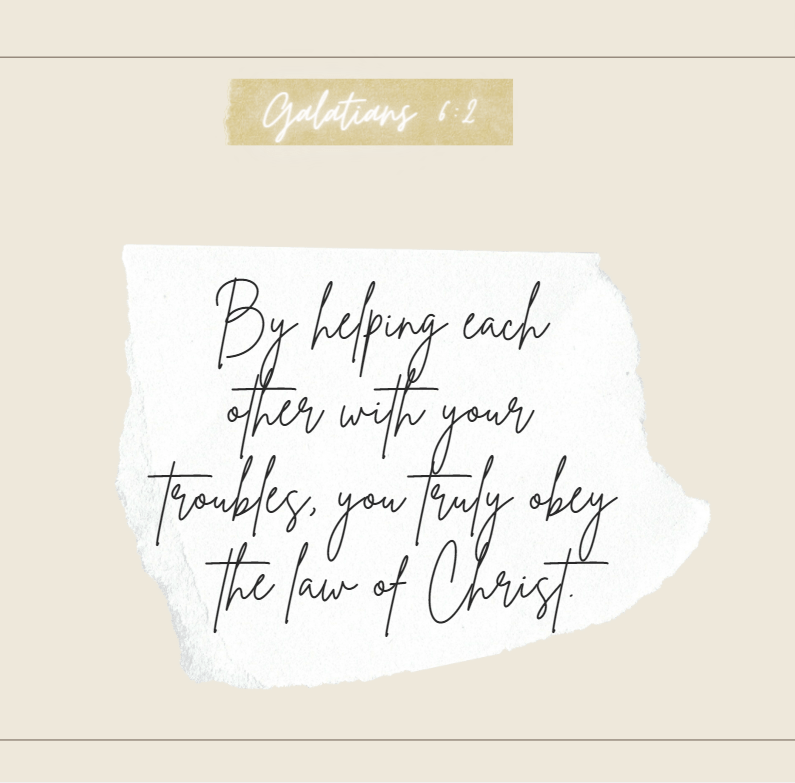 Galatians 6:2
By helping each
other with your
troubles, you truly obey
the law of Christ.